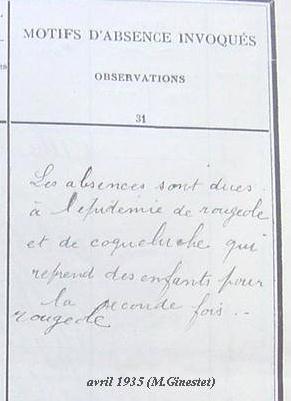 MOTIFS D'ABSENCE INVOQUÉS
OBSERVATIONS
31
Les absences sont dues
à l'épidémie de rougeole
et de coqueluche qui
reprend des enfants pour
la seconde fois. -
rougeole
avril 1935 (M.Ginestet)